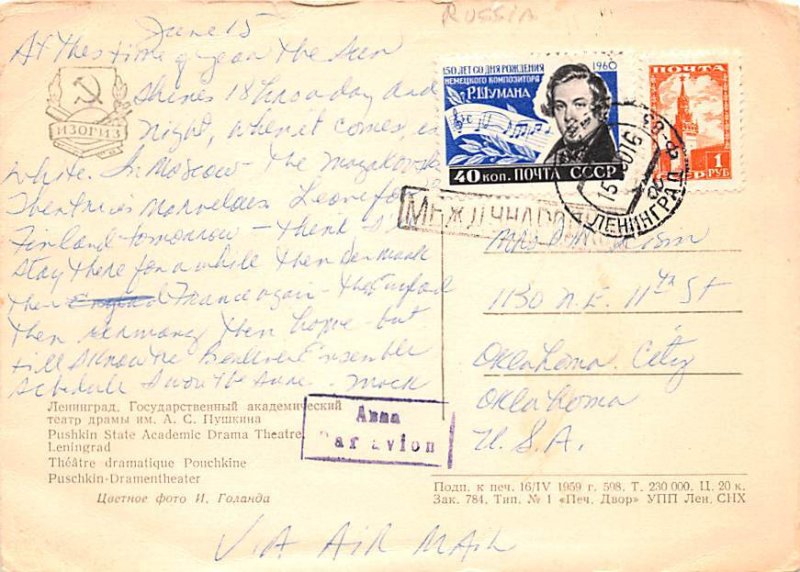 RUSSIA
June 15
At this time of year the sun
shines 18 hrs a day and
night, when it comes, is
white. In Moscow - the
Theatre is marvelous Leave for
Finland tomorrow - think I'll
stay there for a while then Denmark
then England France again - then
then Germany then home - but
till I know the Berliner Ensemble
schedule I won't be sure. Mack
ИЗОГИЗ
150 ЛЕТ СО ДНЯ РОЖДЕНИЯ 1960
НЕМЕЦКОГО КОМПОЗИТОРА
Р. ШУМАНА
40 коп. ПОЧТА СССР
ПОЧТА
1
РУБ
ЛЕНИНГРАД
МЕЖДУНАРОД
Mrs
1130 N.E. 11th St
Oklahoma City
Oklahoma
U.S.A.
Ленинград. Государственный академический
театр драмы им. А. С. Пушкина
Pushkin State Academic Drama Theatre,
Leningrad
Théâtre dramatique Pouchkine
Puschkin-Dramentheater
Цветное фото И. Голанда
Авиа
Par avion
Подп. к печ. 16/IV 1959 г. 598. Т. 230 000. Ц. 20 к.
Зак. 784. Тип. № 1 «Печ. Двор» УПП Лен. СНХ
VIA AIR MAIL